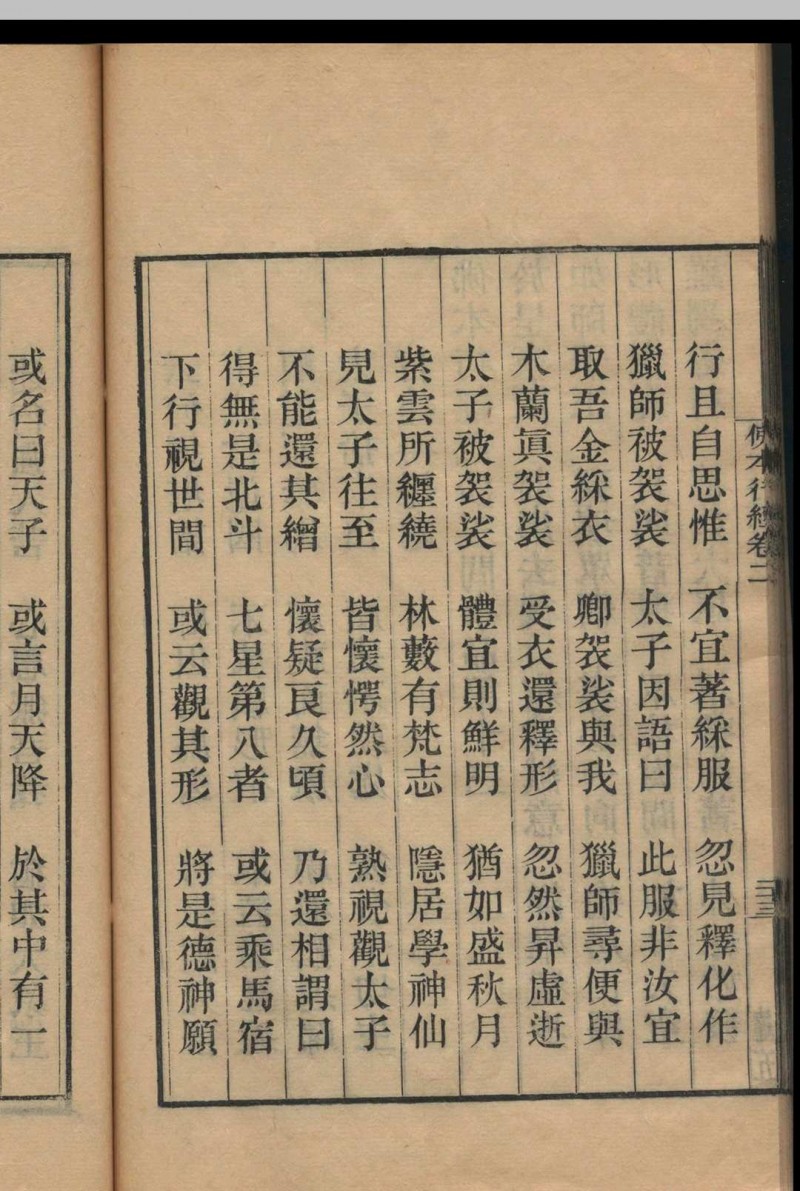 佛本行經卷二
行且自思惟 不宜著綵服 忽見釋化作
獵師被袈裟 太子因語曰 此服非汝宜
取吾金綵衣 卿袈裟與我 獵師尋便與
木蘭眞袈裟 受衣還釋形 忽然昇虛逝
太子被袈裟 體宜則鮮明 猶如盛秋月
紫雲所纏繞 林藪有梵志 隱居學神仙
見太子往至 皆懷愕然心 熟視觀太子
不能還其繒 懷疑良久頃 乃還相謂曰
得無是北斗 七星第八者 或云乘馬宿
下行視世間 或云觀其形 將是德神願
或名曰天子 或言月天降 於其中有一